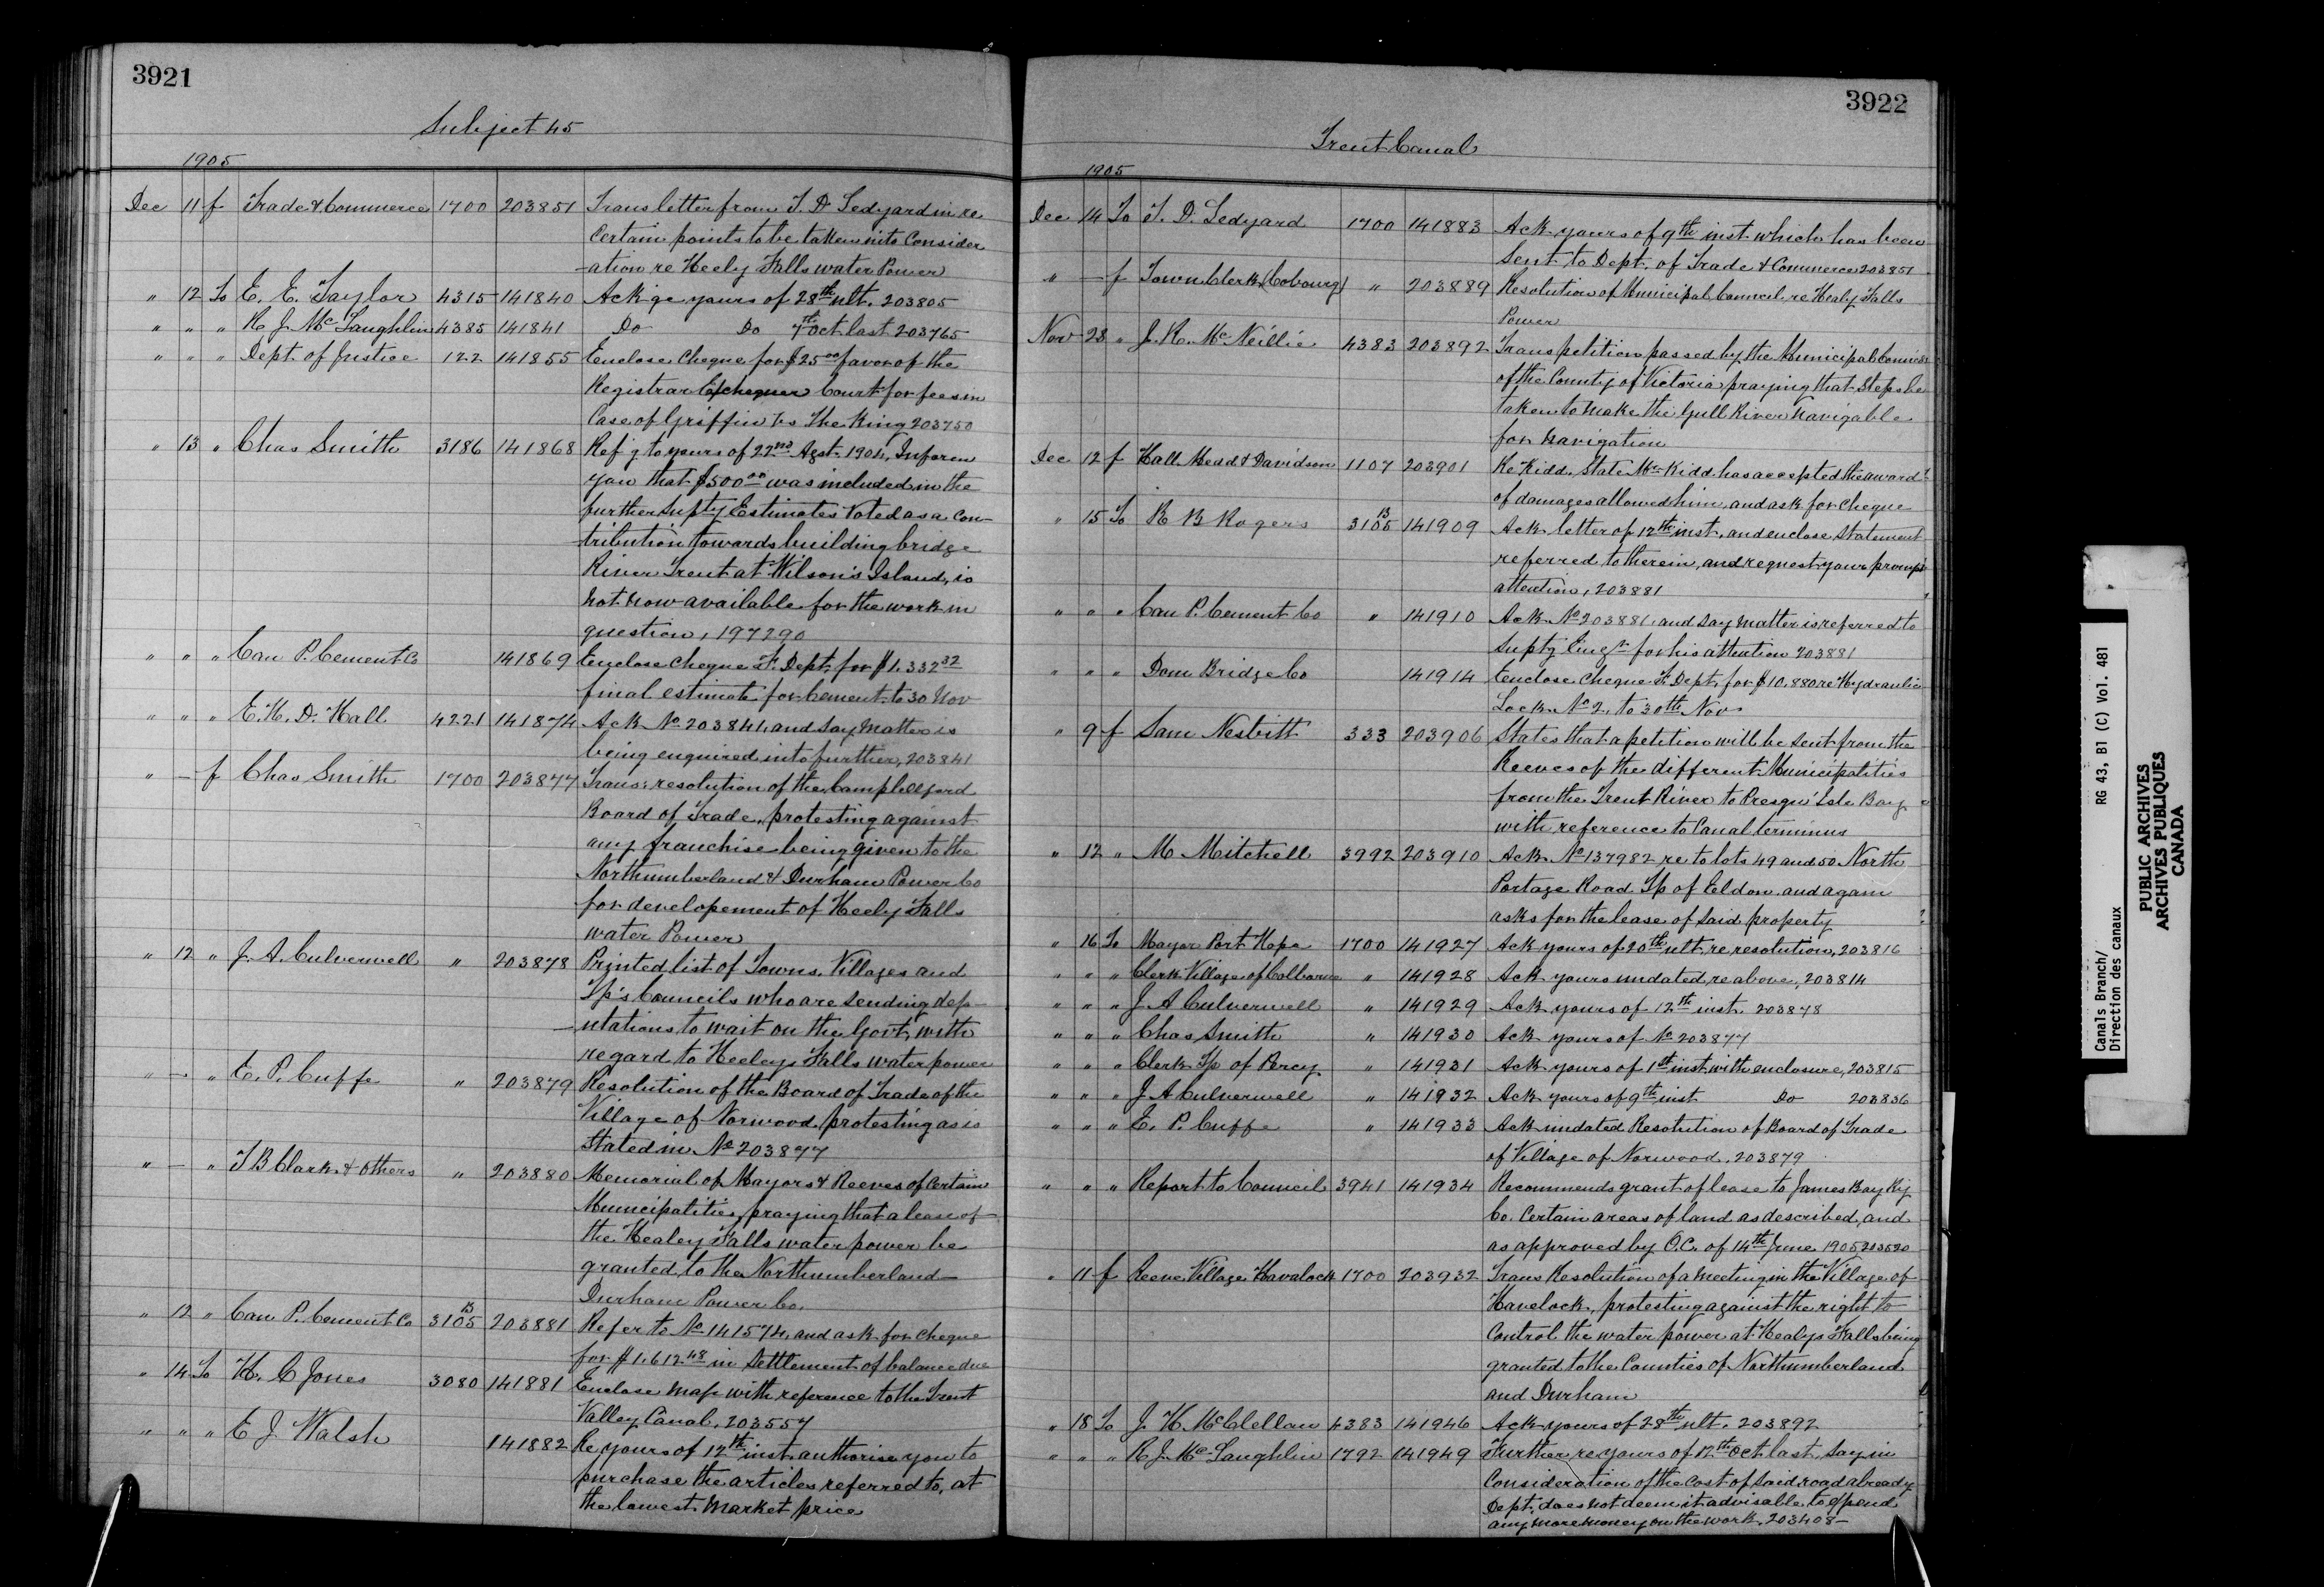 3921
Subject 45
1905
Dec 11 f Trade & Commerce 1700 203851 Trans letter from T. D. Ledyard in re
Certain points to be taken into Consider
-ation re Heely Falls water Power
" 12 To E. E. Taylor 4315 141840 Ackge yours of 28th ult. 203805
" " " R J. McLaughlin 4385 141841 Do Do 7th Oct last 203765
" " " Dept. of Justice 122 141855 Enclose Cheque for $25.00 favor of the
Registrar Exchequer Court for fees in
Case of Griffin vs The King 203750
" 13 " Chas Smith 3186 141868 Refg to yours of 22nd Agst. 1904, Inform
you that $500.00 was included in the
further Supty Estimates Voted as a Con-
tribution towards building bridge
River Trent at Wilson's Island, is
not now available for the work in
question, 197290
" " " Can P. Cement Co 141869 Enclose Cheque F. Dept. for $1.332 32
final estimate for Cement to 30 Nov
" " " E. H. D. Hall 4221 141874 Ack No 203841, and say matter is
being enquired into further, 203841
" — f Chas Smith 1700 203877 Trans: resolution of the Campbellford
Board of Trade, protesting against
any franchise being given to the
Northumberland & Durham Power Co
for developement of Heely Falls
water Power
" 12 " J. A. Culverwell " 203878 Printed list of Towns, Villages and
Tp's Councils who are sending dep-
-utations to wait on the Govt, with
regard to Heeleys Falls water power
" — " E. P. Cuffe " 203879 Resolution of the Board of Trade of the
Village of Norwood protesting as is
Stated in No 203877
" — " T B Clark & Others " 203880 Memorial of Mayors & Reeves of Certain
Municipalities, praying that a lease of
the Healey Falls water power be
granted to the Northumberland—
Durham Power Co.
" 12 " Can P. Cement Co 3105 B 203881 Refer to No 141574, and ask for Cheque
for $1.612 48 in Settlement of balance due
" 14 To H. C Jones 3080 141881 Enclose map with reference to the Trent
Valley Canal. 203557
" " " E J Walsh 141882 Re yours of 12th inst. authorise you to
purchase the articles referred to, at
the lowest market price
3922
Trent Canal
1905
Dec 14 To T. D. Ledyard 1700 141883 Ack yours of 9th inst which has been
Sent to Dept. of Trade & Commerce 203851
" — f Town Clerk (Cobourg) " 203889 Resolution of Municipal Council re Healy Falls
Power
Nov 28 " J. R. McNeillie 4383 203892 Trans petition passed by the Municipal Council
of the County of Victoria praying that Steps be
taken to make the Gull River Navigable
for Navigation
Dec 12 f Hall Mead & Davidson 1107 203901 Re Kidd. State Mr Kidd has accepted the award
of damages allowed him, and ask for Cheque
" 15 To R B Rogers 3105 B 141909 Ack letter of 12th inst, and enclose Statement
referred to therein, and request your prompt
attention, 203881
" " " Can P. Cement Co " 141910 Ack No 203881, and say matter is referred to
Suptg Engr for his attention 203881
" " " Dom Bridge Co 141914 Enclose Cheque F. Dept. for $10.880 re Hydraulic
Lock No 2, to 30th Nov
" 9 f Sam Nesbitt 333 203906 States that a petition will be Sent from the
Reeves of the different Municipalities
from the Trent River to Presqu' Isle Bay
with reference to Canal terminus
" 12 " M Mitchell 3992 203910 Ack No 137982 re to lots 49 and 50 North
Portage Road Tp of Eldon and again
asks for the lease of Said property
" 16 To Mayor Port Hope 1700 141927 Ack yours of 20th ult. re resolution, 203816
" " " Clerk Village of Colborne " 141928 Ack yours undated re above, 203814
" " " J A Culverwell " 141929 Ack yours of 12th inst. 203878
" " " Chas Smith " 141930 Ack yours of No 203877
" " " Clerk Tp of Percy " 141931 Ack yours of 1st inst with enclosure, 203815
" " " J A Culverwell " 141932 Ack yours of 9th inst Do 203836
" " " E. P. Cuffe " 141933 Ack undated Resolution of Board of Trade
of Village of Norwood, 203879
" " " Report to Council 3941 141934 Recommends grant of lease to James Bay Ry
Co. Certain areas of land as described, and
as approved by O.C. of 14th June 1905 203520
" 11 f Reeve Village Havalock 1700 203932 Trans Resolution of a meeting in the Village of
Havelock, protesting against the right to
Control the water power at Healys Falls being
granted to the Counties of Northumberland
and Durham
" 18 To J. H. McClellan 4383 141946 Ack yours of 28th ult. 203892
" " " R. J. McLaughlin 1792 141949 Further re yours of 12th Oct last, say in
Consideration of the Cost of Said road already
Dept. does not deem it advisable to expend
any more money on the work. 203408—
Canals Branch/ RG 43, B1 (C) Vol. 481
Direction des canaux
PUBLIC ARCHIVES
ARCHIVES PUBLIQUES
CANADA